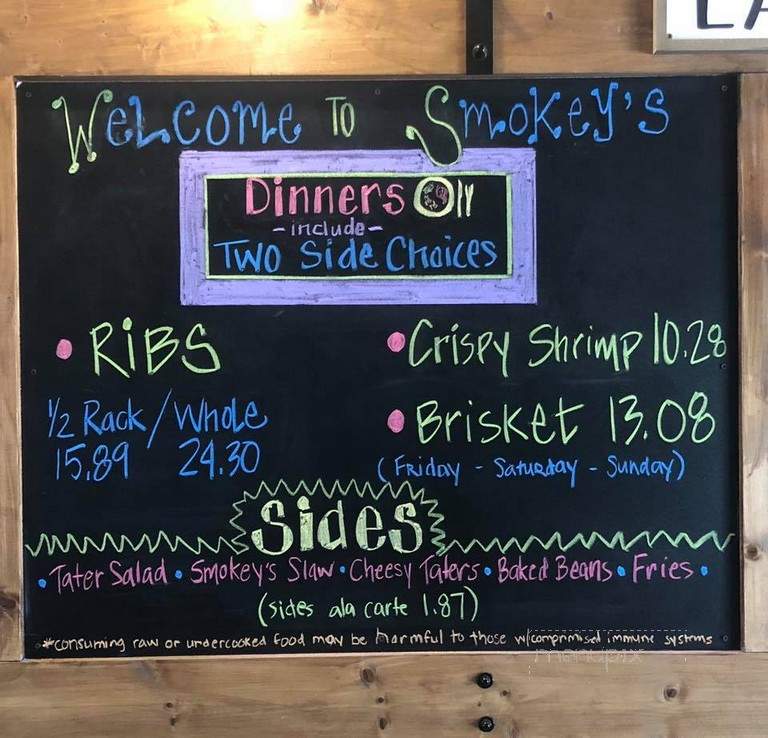 Welcome to Smokey's
Dinners Only
-include-
Two Side Choices
• RiBS
1/2 Rack / Whole
15.89 24.30
• Crispy Shrimp 10.28
• Brisket 13.08
(Friday - Saturday - Sunday)
Sides
• Tater Salad • Smokey's Slaw • Cheesy Taters • Baked Beans • Fries •
(sides ala carte 1.87)
*consuming raw or undercooked food may be harmful to those w/comprimised immune systems
menupix